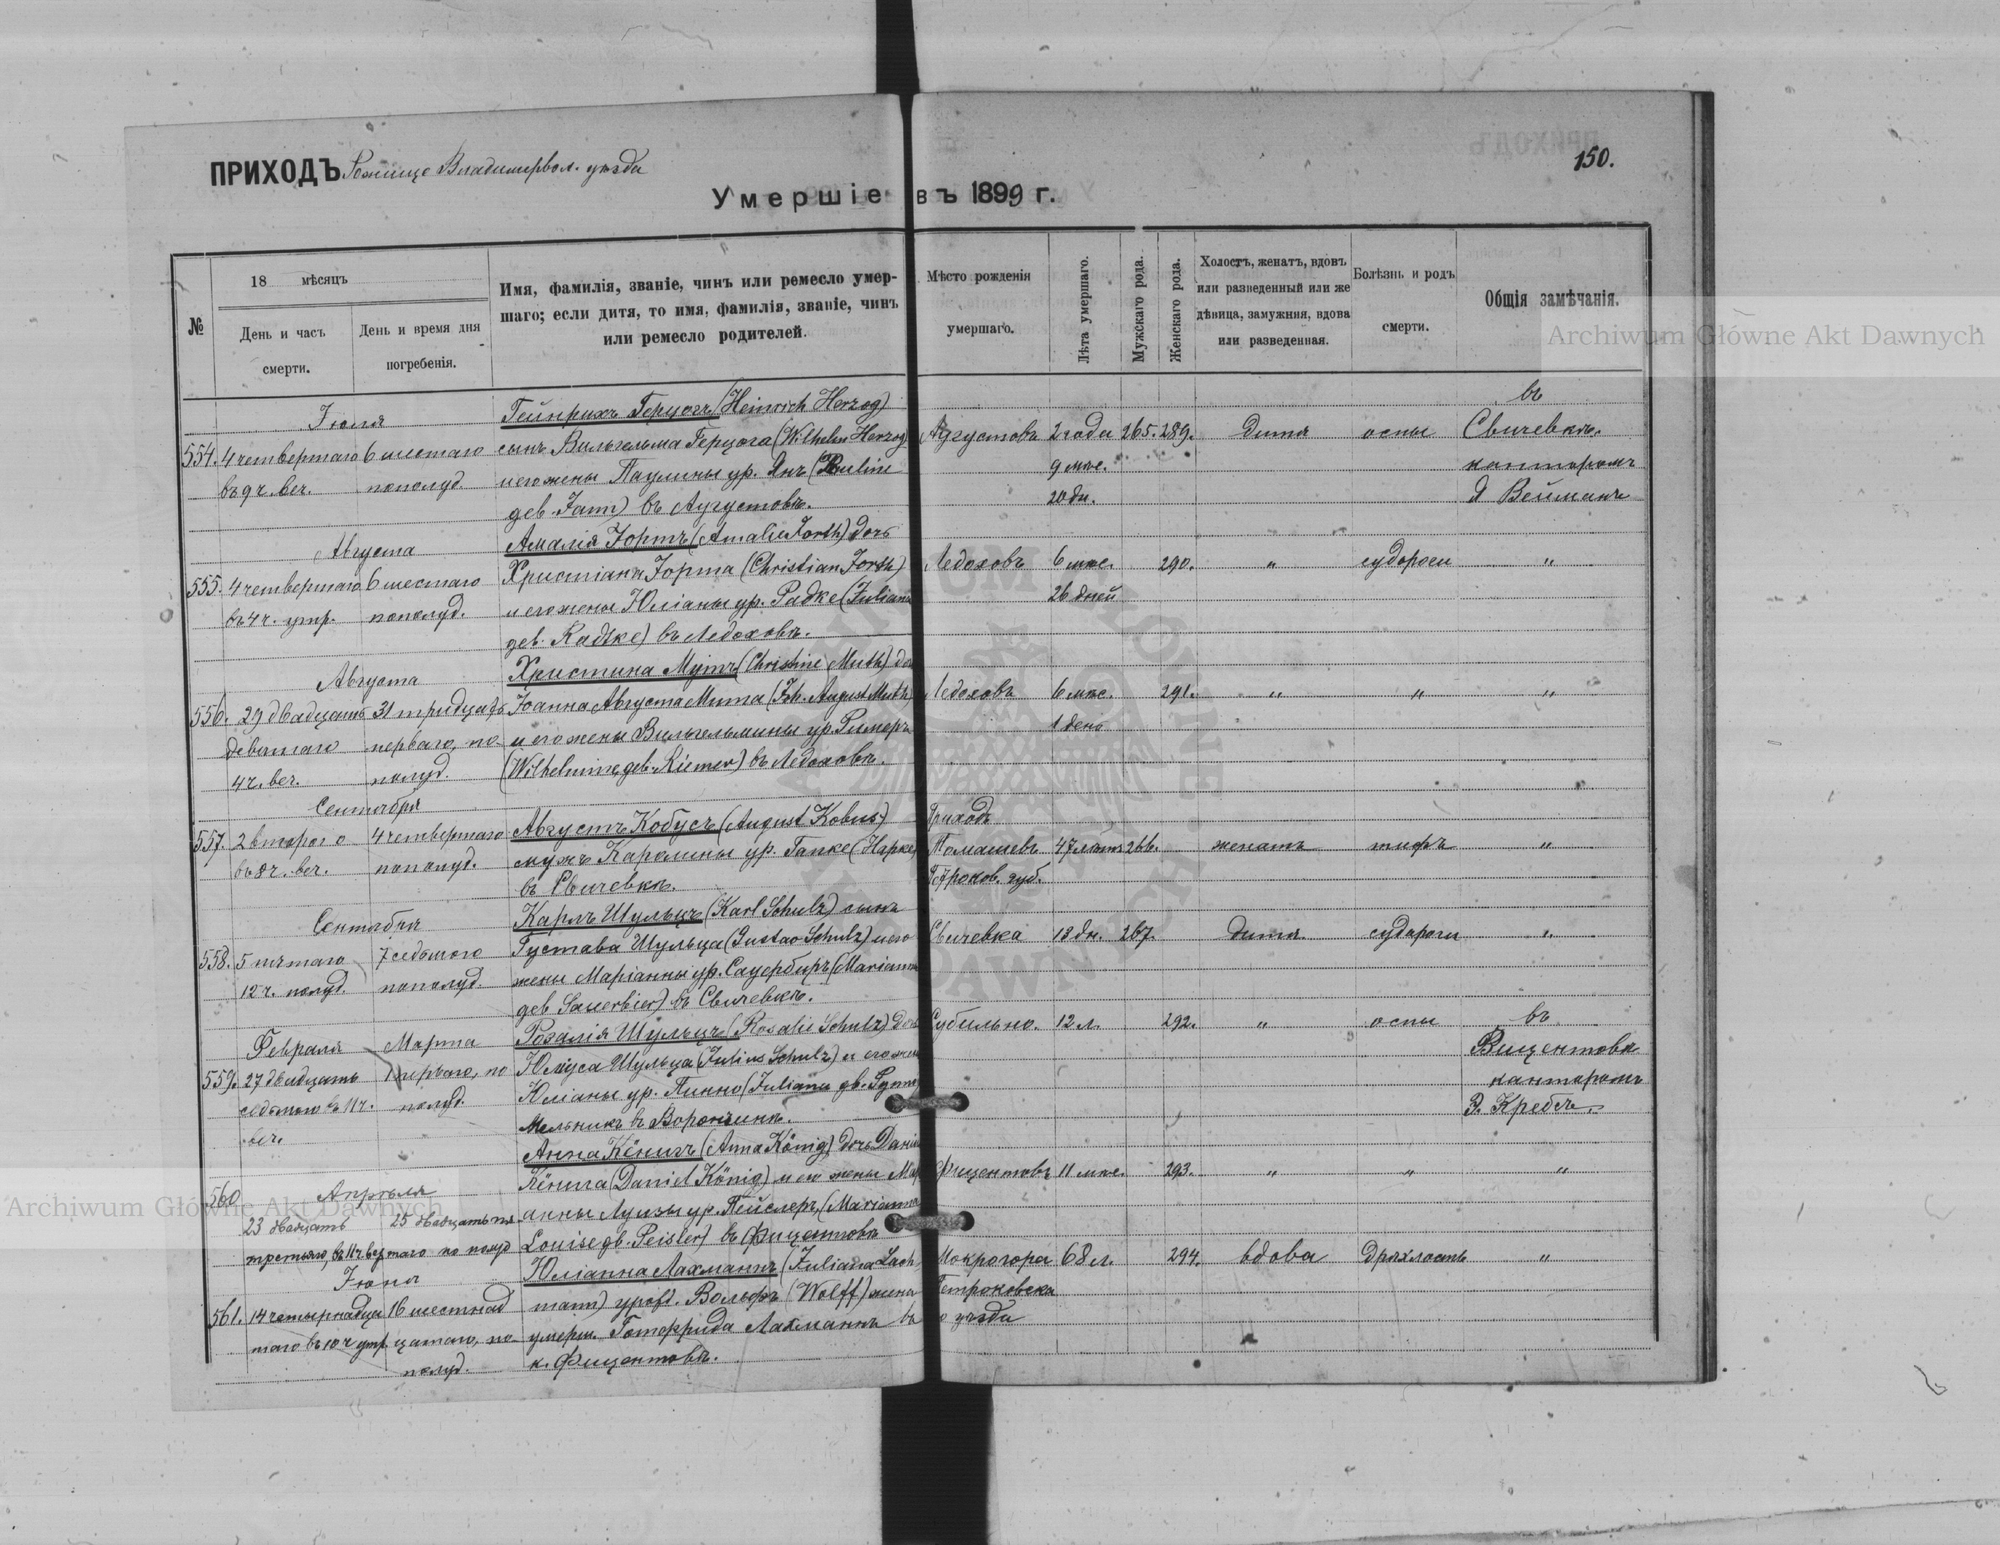 ПРИХОДЪ Рожище Владимирвол. уѣзда
150.
Умершіе въ 1899 г.
№
18 мѣсяцъ
День и часъ смерти.
День и время дня погребенія.
Имя, фамилія, званіе, чинъ или ремесло умер-
шаго; если дитя, то имя, фамилія, званіе, чинъ
или ремесло родителей.
Мѣсто рожденія
умершаго.
Лѣта умершаго.
Мужскаго рода.
Женскаго рода.
Холостъ, женатъ, вдовъ
или разведенный или же
дѣвица, замужняя, вдова
или разведенная.
Болѣзнь и родъ
смерти.
Общія замѣчанія.
Archiwum Główne Akt Dawnych
Іюля
554. 4 четвертаго
въ 9 ч. веч.
6 шестаго
пополуд.
Гейнрихъ Герцогъ (Heinrich Herzog)
сынъ Вильгельма Герцога (Wilhelm Herzog)
и его жены Паулины ур. Янъ (Pauline
геб. Jann) въ Аугустовъ.
Аугустовъ 2 года 265. 289. дитя оспы
9 мѣс.
20 дн.
въ
Свичевкѣ
канторомъ
Я Вейманъ
Августа
555. 4 четвертаго
въ 4 ч. утр.
6 шестаго
пополуд.
Амалія Іортъ (Amalie Jorth) дочь
Христіана Іорта (Christian Jorth)
и его жены Юліаны ур. Радке (Juliana
геб. Radtke) въ Ледоховкѣ.
Ледоховъ 6 мѣс. 290. " судороги "
26 дней
Августа
556. 29 двадцать
девятаго
4 ч. веч.
31 тридцать
перваго, по
полуд.
Христина Мутъ (Christine Muth) до
Іоанна Августа Мута (Joh. August Muth)
и его жены Вильгельмины ур. Римеръ
(Wilhelmine geb. Riemer) въ Ледоховкѣ.
Ледоховъ 6 мѣс. 291. " " "
1 день
Сентября
557. 2 второго
въ 8 ч. веч.
4 четвертаго
пополуд.
Августъ Кобусъ (August Kobus)
мужъ Каролины ур. Гапке (Hapke)
въ Свичевкѣ.
Приходъ
Томашевъ 47 лѣтъ 266. женатъ тифъ "
Петроков. губ.
Сентября
558. 5 пятаго
12 ч. полуд.
7 седьмого
пополуд.
Карлъ Шульцъ (Karl Schulz) сынъ
Густава Шульца (Gustav Schulz) и его
жены Маріанны ур. Сауербиръ (Marianna
геб. Sauerbier) въ Свичевкѣ.
Свичевка 13 дн. 267. дитя судороги "
Февраля Марта
559. 27 двадцать
седьмого въ 11 ч.
веч.
1 перваго, по
полуд.
Розалія Шульцъ (Rosalie Schulz) доч
Юліуса Шульца (Julius Schulz) и его жен
Юліаны ур. Пинно (Juliana
Мельникъ въ Ворончинкѣ.
12 л. 292. " оспы
въ
канторомъ
Э. Кребсъ.
560. Апрѣля
23 двадцать
третьяго, въ 11 ч. веч
25 двадцать пя
таго по полуд
Анна Кёнигъ (Anna König) дочь Дани
Кёнига (Daniel König) и его жены Мар
анны Луизы ур. Пейслеръ, (Marianna
Louise geb. Peisler) въ Фицентовкѣ
Фицентовъ 11 мѣс. 293. " " "
Іюня
561. 14 четырнадца
таго въ 10 ч утр.
16 шестнад
цатаго, по
полуд.
Юліанна Лахманнъ (Juliana Lach
mann) урожд. Вольфъ (Wolff) жена
умерш. Готфрида Лахманнъ въ
к. Фицентовкѣ.
Мокрогора 68 л. 294. вдова дряхлость "
Петроковска
о уѣзда
Archiwum Główne Akt Dawnych